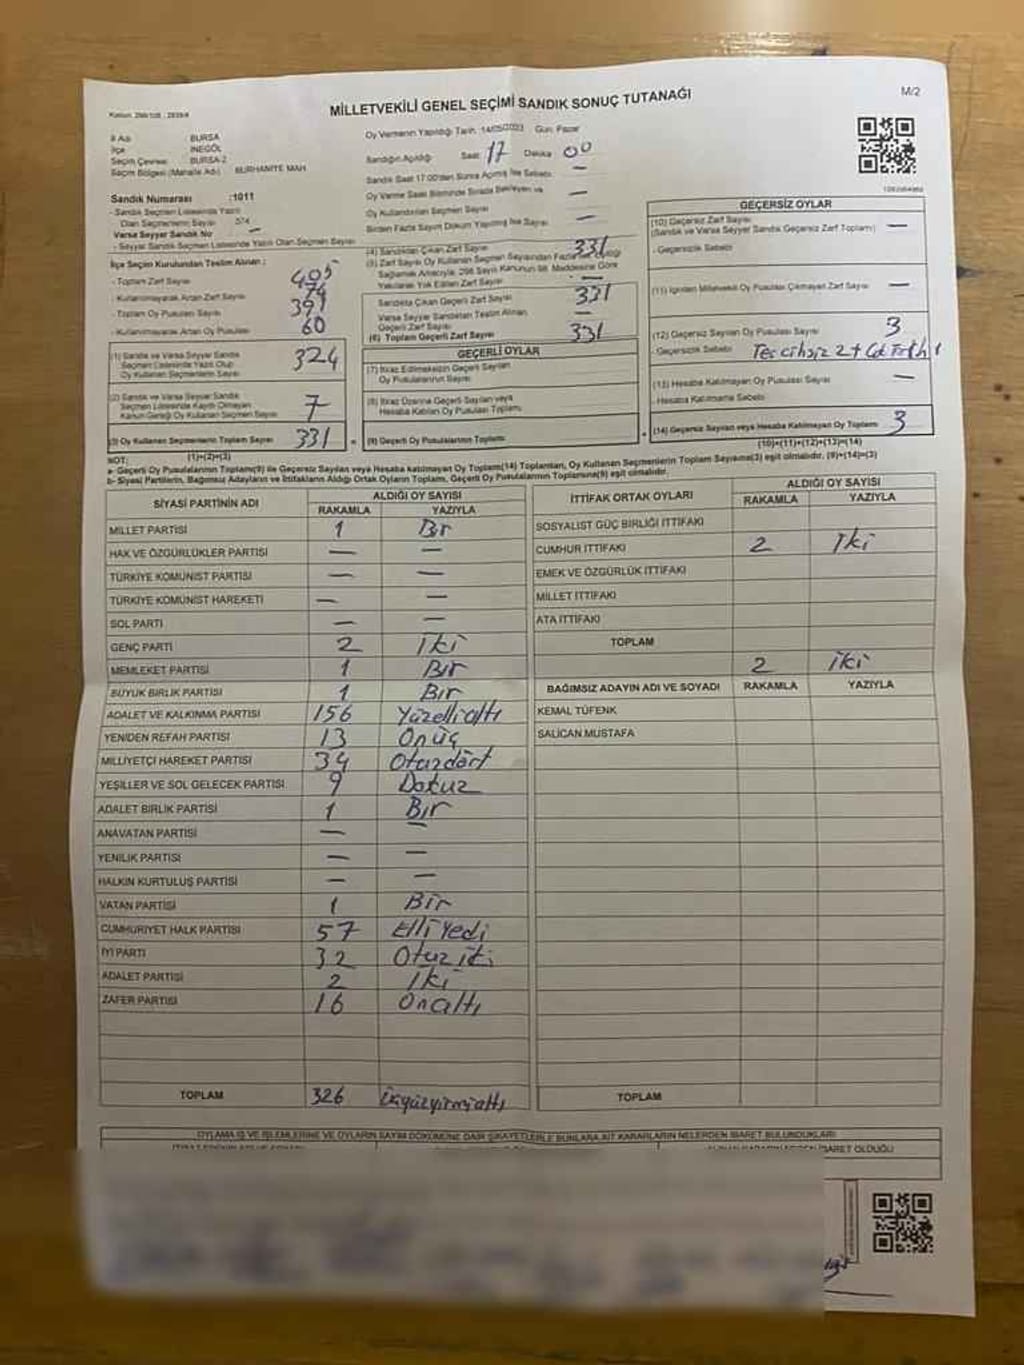 M/2
MİLLETVEKİLİ GENEL SEÇİMİ SANDIK SONUÇ TUTANAĞI
İl Adı : BURSA
İlçe : İNEGÖL
Seçim Çevresi : BURSA-2
Seçim Bölgesi (Mahalle Adı) : BURHANİYE MAH
Sandık Numarası :1011
- Sandık Seçmen Listesinde Yazılı
Olan Seçmenlerin Sayısı 574
Varsa Seyyar Sandık No —
- Seyyar Sandık Seçmen Listesinde Yazılı Olan Seçmen Sayısı
Oy Vermenin Yapıldığı Tarih: 14/05/2023 Gün: Pazar
Sandığın Açıldığı Saat 17 Dakika 00
Sandık Saat 17:00'den Sonra Açılmış İse Sebebi —
Oy Verme Saati Bitiminde Sırada Bekleyen ve
Oy Kullandırılan Seçmen Sayısı —
Birden Fazla Sayım Döküm Yapılmış İse Sayısı —
İlçe Seçim Kurulundan Teslim Alınan :
- Toplam Zarf Sayısı 405
- Kullanılmayarak Artan Zarf Sayısı 74
- Toplam Oy Pusulası Sayısı 391
- Kullanılmayarak Artan Oy Pusulası 60
(1) Sandık ve Varsa Seyyar Sandık
Seçmen Listesinde Yazılı Olup
Oy Kullanan Seçmenlerin Sayısı 324
(2) Sandık ve Varsa Seyyar Sandık
Seçmen Listesinde Kayıtlı Olmayan
Kanun Gereği Oy Kullanan Seçmen Sayısı 7
(3) Oy Kullanan Seçmenlerin Toplam Sayısı 331
(1)+(2)=(3)
(4) Sandıktan Çıkan Zarf Sayısı 331
(5) Zarf Sayısı Oy Kullanan Seçmen Sayısından Fazla İse Eşitliği
Sağlamak Amacıyla, 298 Sayılı Kanunun 98. Maddesine Göre
Yakılarak Yok Edilen Zarf Sayısı —
Sandıkta Çıkan Geçerli Zarf Sayısı 331
Varsa Seyyar Sandıktan Teslim Alınan
Geçerli Zarf Sayısı —
(6) Toplam Geçerli Zarf Sayısı 331
GEÇERLİ OYLAR
(7) İtiraz Edilmeksizin Geçerli Sayılan
Oy Pusulalarının Sayısı
(8) İtiraz Üzerine Geçerli Sayılan veya
Hesaba Katılan Oy Pusulası Toplamı
(9) Geçerli Oy Pusulalarının Toplamı
GEÇERSİZ OYLAR
(10) Geçersiz Zarf Sayısı —
(Sandık ve Varsa Seyyar Sandık Geçersiz Zarf Toplamı)
- Geçersizlik Sebebi
(11) İçinden Milletvekili Oy Pusulası Çıkmayan Zarf Sayısı —
(12) Geçersiz Sayılan Oy Pusulası Sayısı 3
- Geçersizlik Sebebi Tercihsiz 2 +
(13) Hesaba Katılmayan Oy Pusulası Sayısı —
- Hesaba Katılmama Sebebi
(14) Geçersiz Sayılan veya Hesaba Katılmayan Oy Toplamı 3
(10)+(11)+(12)+(13)=(14)
NOT:
a- Geçerli Oy Pusulalarının Toplamı(9) ile Geçersiz Sayılan veya Hesaba katılmayan Oy Toplamı(14) Toplamları, Oy Kullanan Seçmenlerin Toplam Sayısına(3) eşit olmalıdır. (9)+(14)=(3)
b- Siyasi Partilerin, Bağımsız Adayların ve İttifakların Aldığı Ortak Oyların Toplamı, Geçerli Oy Pusulalarının Toplamına(9) eşit olmalıdır.
SİYASİ PARTİNİN ADI ALDIĞI OY SAYISI
RAKAMLA YAZIYLA
MİLLET PARTİSİ 1 Bir
HAK VE ÖZGÜRLÜKLER PARTİSİ — —
TÜRKİYE KOMÜNİST PARTİSİ — —
TÜRKİYE KOMÜNİST HAREKETİ — —
SOL PARTİ — —
GENÇ PARTİ 2 İki
MEMLEKET PARTİSİ 1 Bir
BÜYÜK BİRLİK PARTİSİ 1 Bir
ADALET VE KALKINMA PARTİSİ 156 Yüzellialtı
YENİDEN REFAH PARTİSİ 13 Onüç
MİLLİYETÇİ HAREKET PARTİSİ 34 Otuzdört
YEŞİLLER VE SOL GELECEK PARTİSİ 9 Dokuz
ADALET BİRLİK PARTİSİ 1 Bir
ANAVATAN PARTİSİ — —
YENİLİK PARTİSİ — —
HALKIN KURTULUŞ PARTİSİ — —
VATAN PARTİSİ 1 Bir
CUMHURİYET HALK PARTİSİ 57 Elli Yedi
İYİ PARTİ 32 Otuz iki
ADALET PARTİSİ 2 İki
ZAFER PARTİSİ 16 Onaltı
TOPLAM 326 Üçyüzyirmialtı
İTTİFAK ORTAK OYLARI ALDIĞI OY SAYISI
RAKAMLA YAZIYLA
SOSYALİST GÜÇ BİRLİĞİ İTTİFAKI
CUMHUR İTTİFAKI 2 İki
EMEK VE ÖZGÜRLÜK İTTİFAKI
MİLLET İTTİFAKI
ATA İTTİFAKI
TOPLAM 2 iki
BAĞIMSIZ ADAYIN ADI VE SOYADI RAKAMLA YAZIYLA
KEMAL TÜFENK
SALİCAN MUSTAFA
TOPLAM
OYLAMA İŞ VE İŞLEMLERİNE VE OYLARIN SAYIM DÖKÜMÜNE DAİR ŞİKAYETLERLE BUNLARA AİT KARARLARIN NELERDEN İBARET BULUNDUKLARI